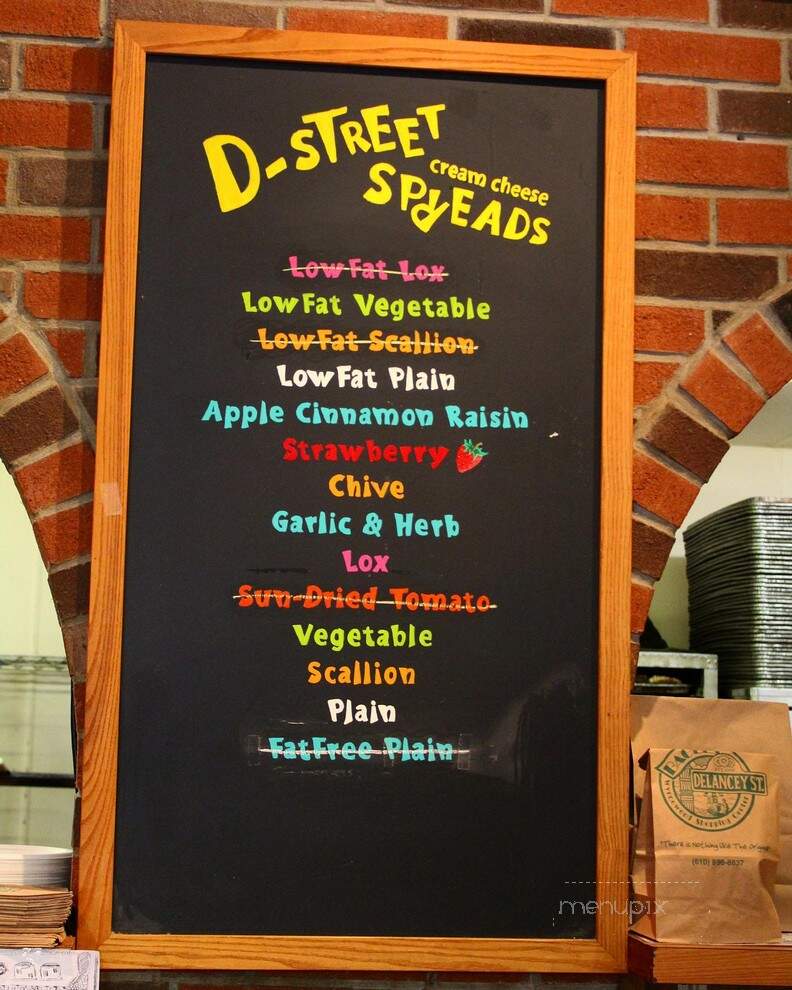 D-STREET
cream cheese
SPrEADS
LowFat Lox
LowFat Vegetable
LowFat Scallion
LowFat Plain
Apple Cinnamon Raisin
Strawberry
Chive
Garlic & Herb
Lox
Sun-Dried Tomato
Vegetable
Scallion
Plain
FatFree Plain
DELANCEY ST.
Wynnewood Shopping Center
"There is Nothing Like The
(610) 896-8837
menupix